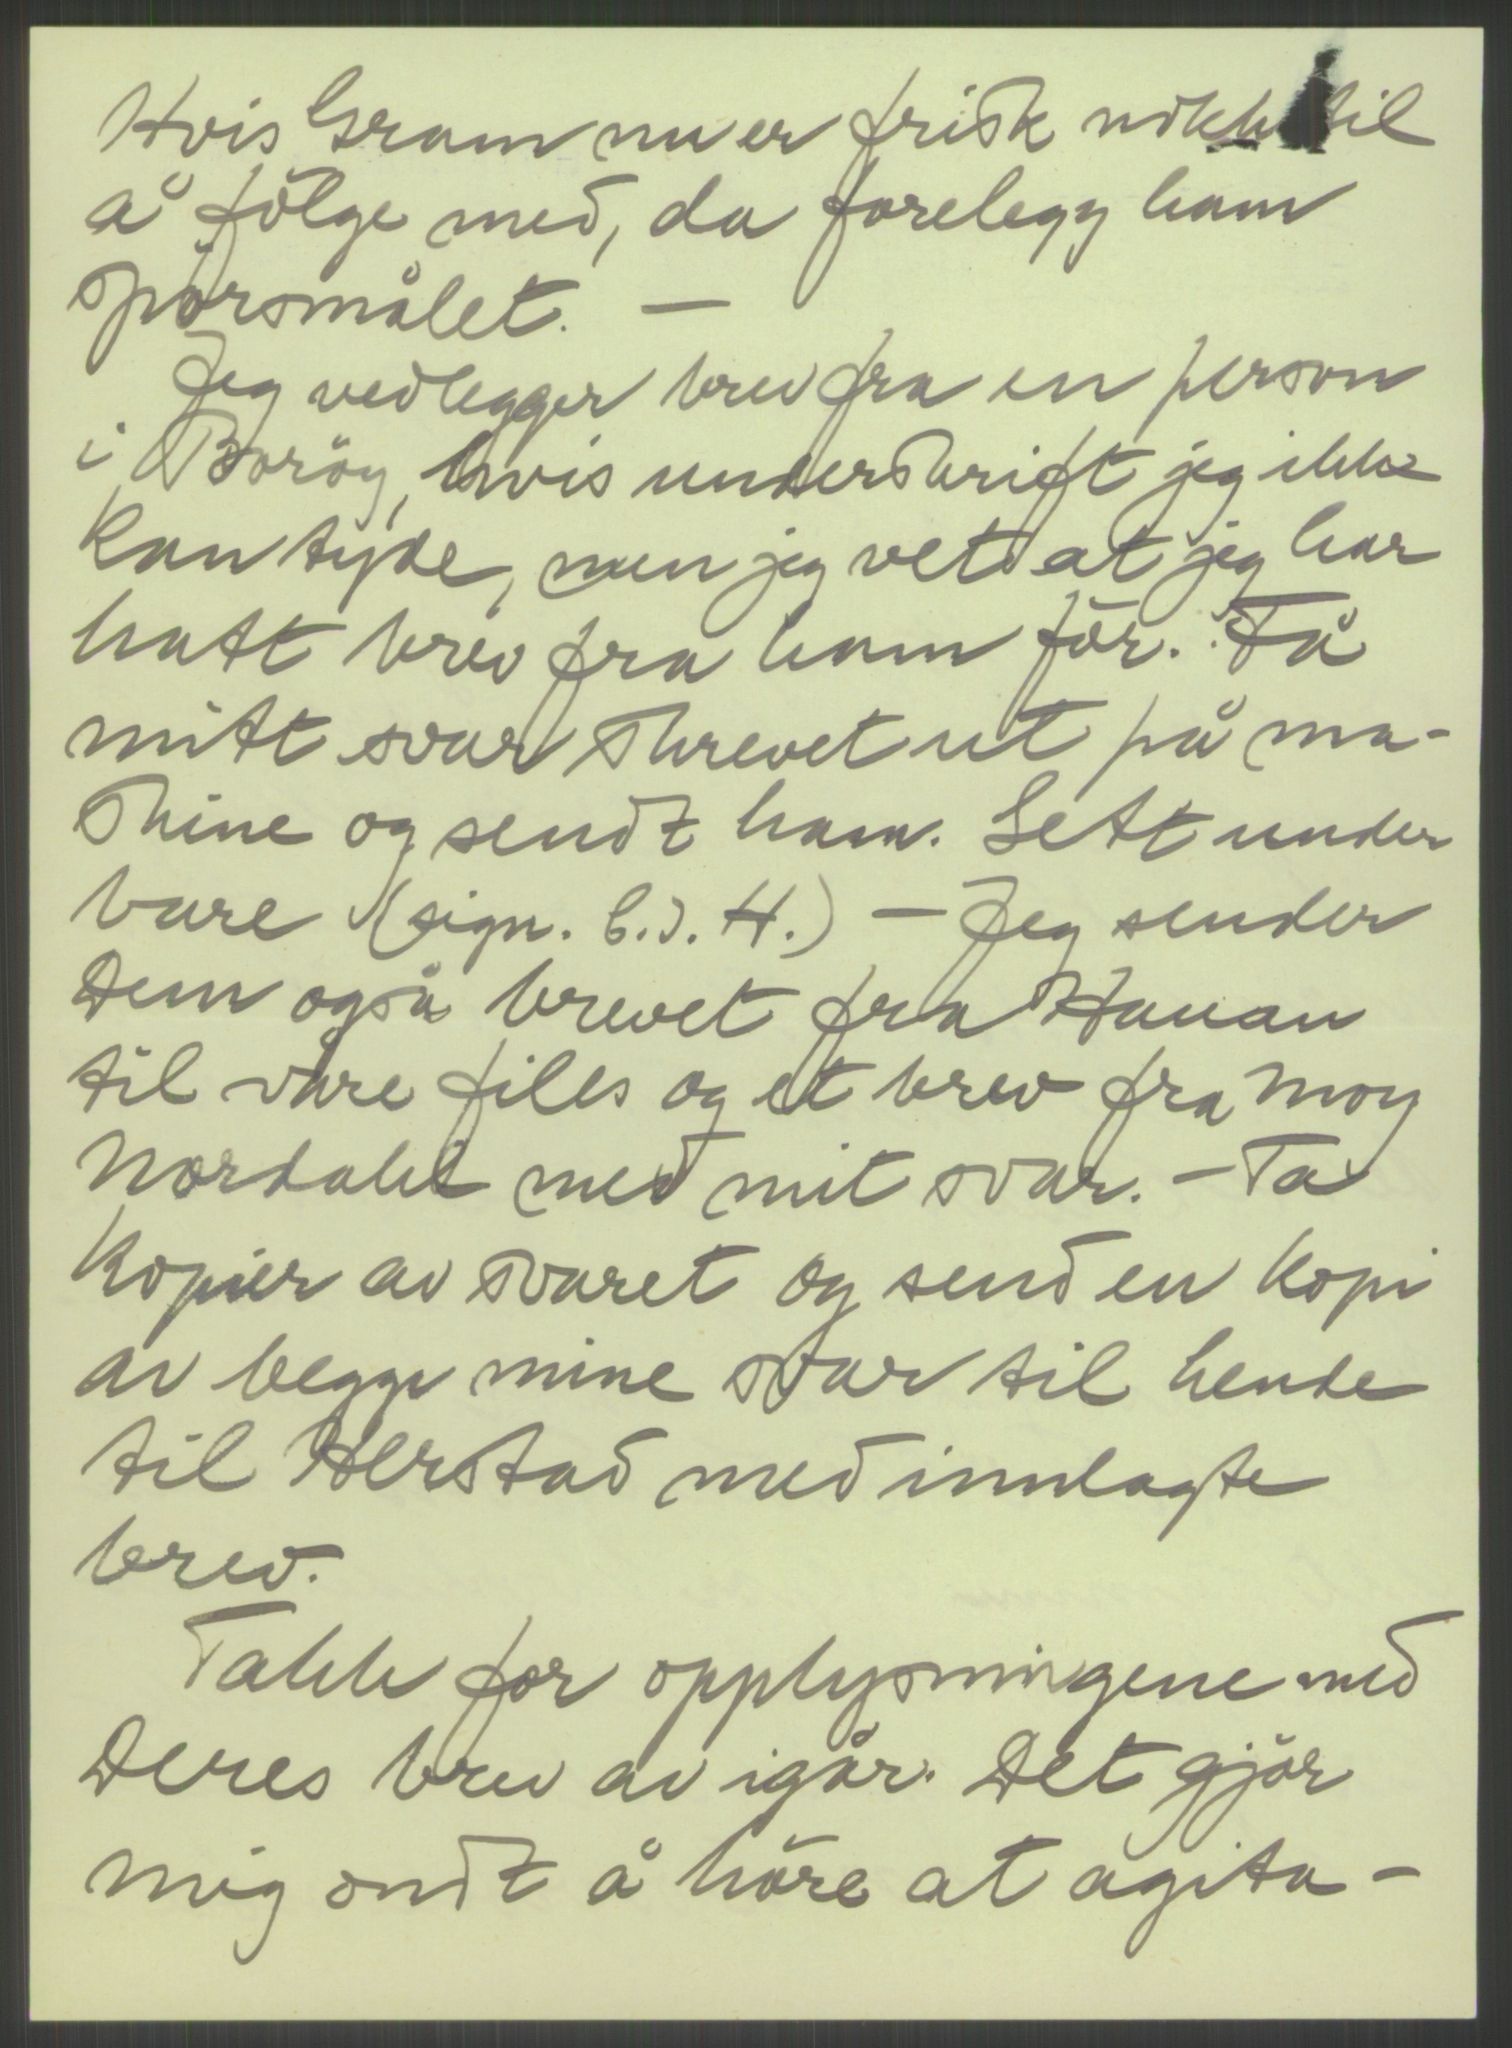 Hvis Gram nu er frisk nokk til
å følge med, da forelegg ham
spørsmålet. —
Jeg vedlegger brev fra en person
i Borøy, hvis underskrift jeg ikke
kan tyde, men jeg vet at jeg har
hatt brev fra ham før. Få
mitt svar skrevet ut på ma-
skine og sendt ham. Sett under
bare (sign. C.J.H.) — Jeg sender
Dem også brevet fra Hauan
til våre files og et brev fra Moy
Nordahl med mit svar. — Ta
kopier av svaret og send en kopi
av begge mine svar til hende
til Herstad med innlagte
brev.
Takk for opplysningene med
Deres brev av igår. Det gjør
mig ondt å høre at agita-